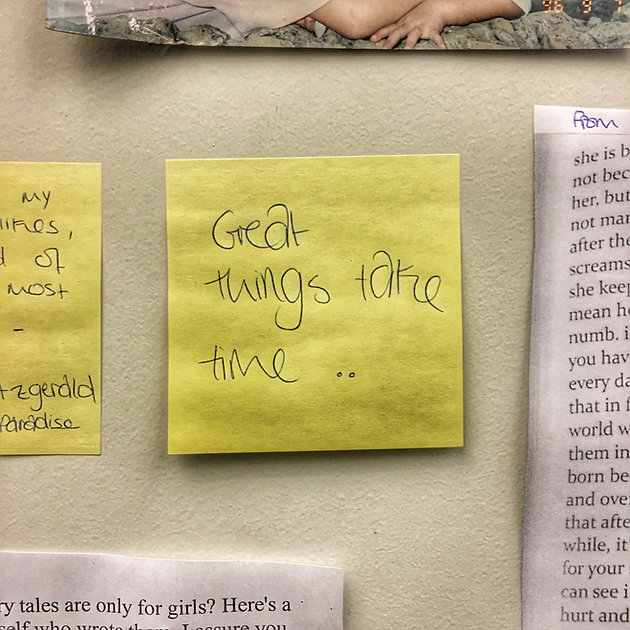 96 9 7
my
likes,
d of
most
-
tzgerald
Paradise
Great
things take
time ..
from
she is b
not bec
her, but
not mar
after the
screams
she keep
mean he
numb. i
you hav
every da
that in f
world w
them in
born be
and ove
that afte
while, it'
for your
can see i
hurt and
ry tales are only for girls? Here's a
self who wrote them. I assure you